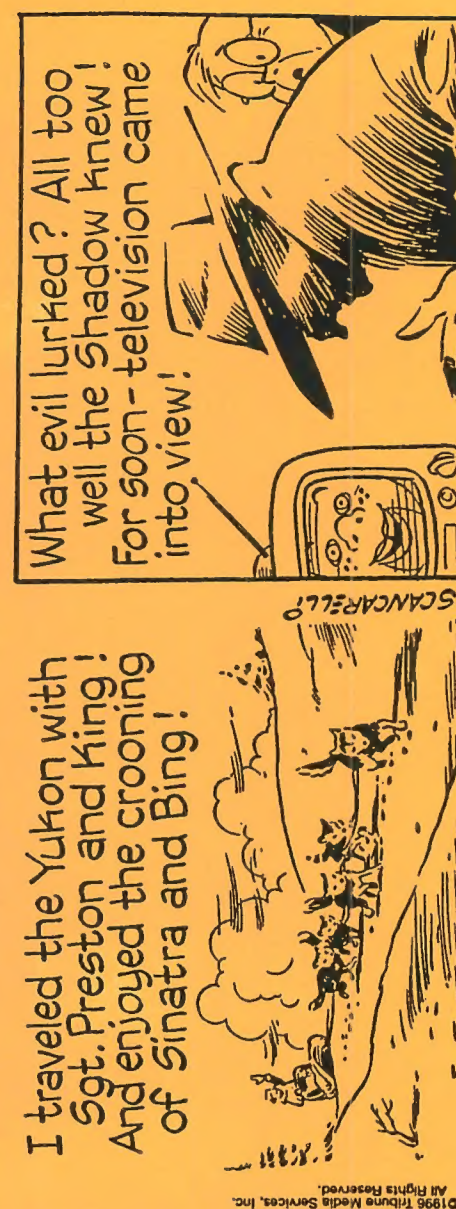 I traveled the Yukon with
Sgt. Preston and King!
And enjoyed the crooning
of Sinatra and Bing!
©1996 Tribune Media Services, Inc.
All Rights Reserved.
SCANCARELLI
What evil lurked? All too
well the Shadow knew!
For soon-television came
into view!